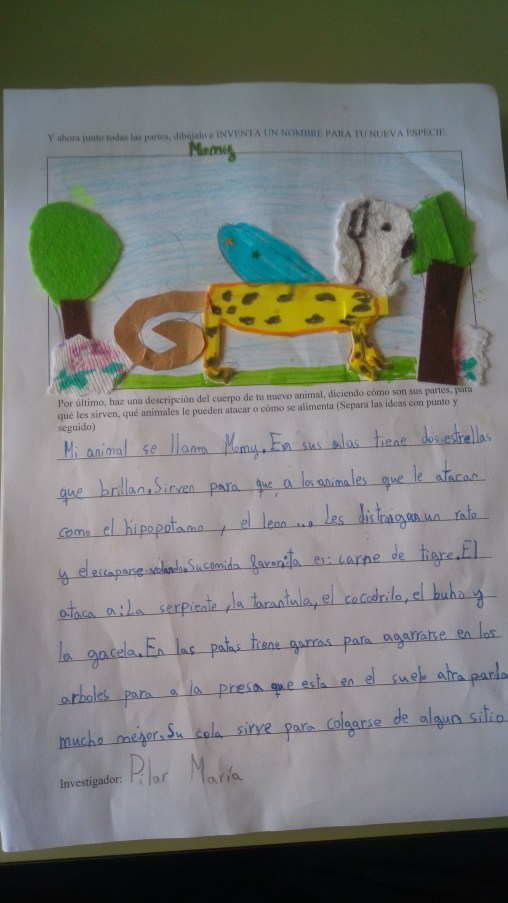 Y ahora junto todas las partes, dibújalo e INVENTA UN NOMBRE PARA TU NUEVA ESPECIE.
Momy
Por último, haz una descripción del cuerpo de tu nuevo animal, diciendo cómo son sus partes, para
qué les sirven, qué animales le pueden atacar o cómo se alimenta (Separa las ideas con punto y
seguido)
Mi animal se llama Momy. En sus alas tiene dos estrellas
que brillan. Sirven para que a los animales que le atacan
como el hipopotamo, el leon... les distraigan un rato
y el escaparse volando. Su comida favorita es: carne de tigre. El
ataca a: La serpiente, la tarantula, el cocodrilo, el buho y
la gacela. En las patas tiene garras para agarrarse en los
arboles para a la presa que esta en el suelo atraparla
mucho mejor. Su cola sirve para colgarse de algun sitio
Investigador: Pilar María